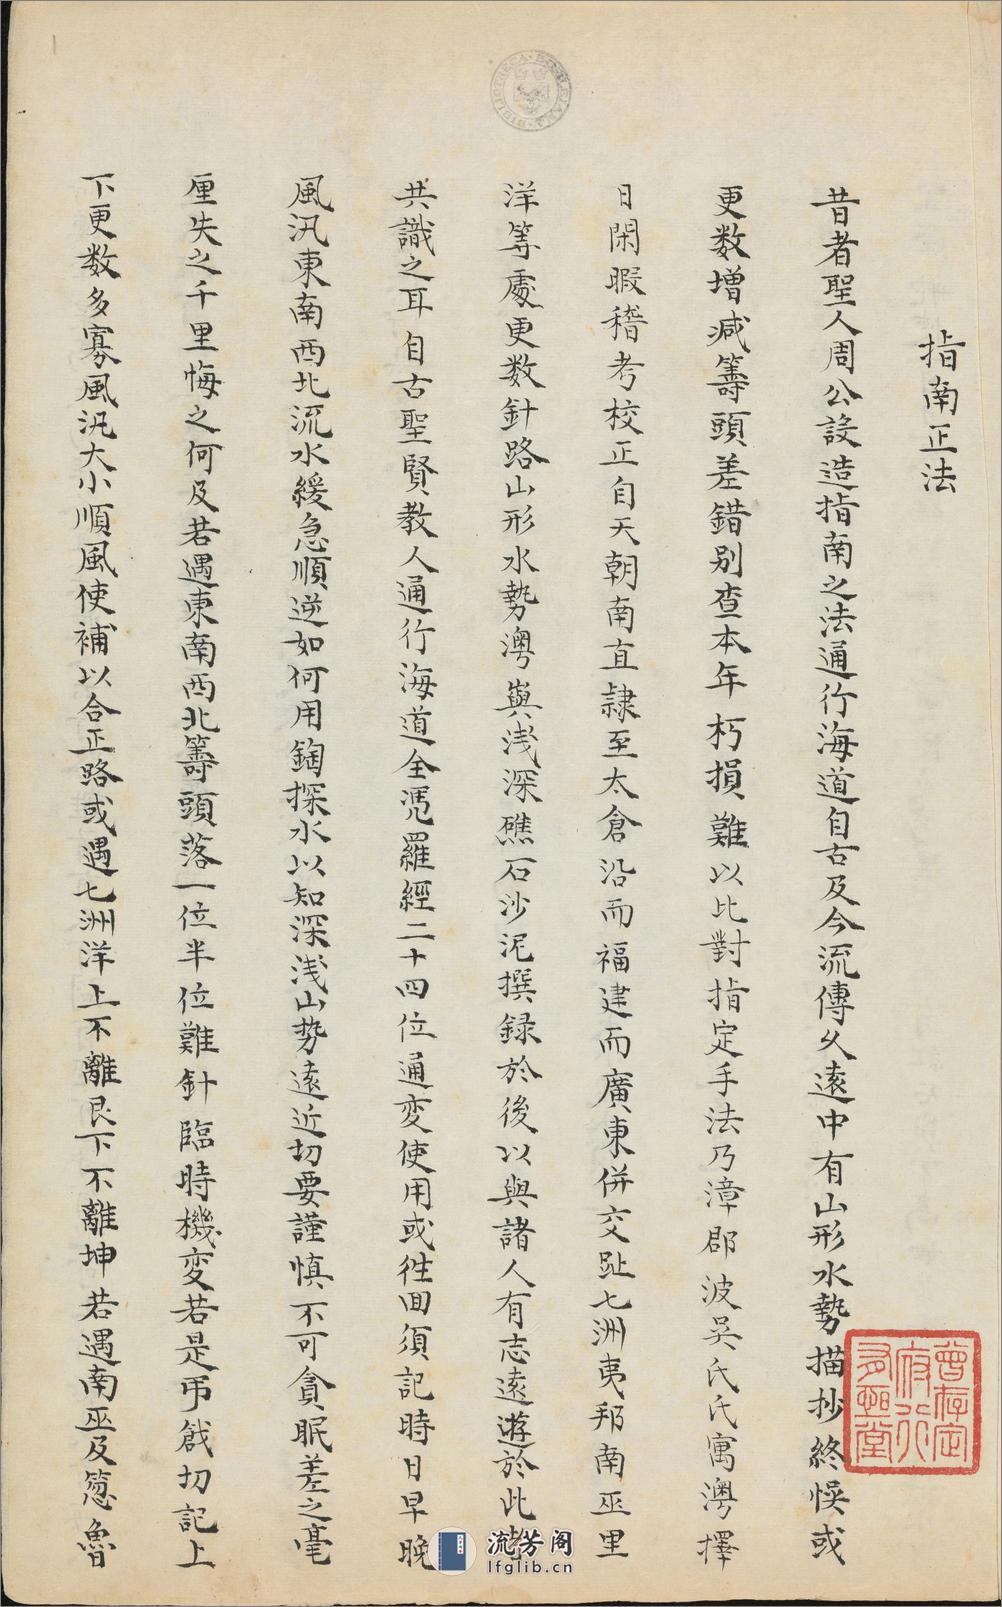 指南正法
昔者聖人周公設造指南之法通行海道自古及今流傳久遠中有山形水勢描抄終悞或
更数增减籌頭差錯别查本年朽損難以比對指定手法乃漳郡波吳氏氏寓澳擇
日閑暇稽考校正自天朝南直隷至太倉沿而福建而廣東併交趾七洲夷邦南巫里
洋等處更数針路山形水勢澳嶼浅深礁石沙泥撰録於後以與諸人有志遠遊於此者
共識之耳自古聖賢教人通行海道全凴羅經二十四位通変使用或徃囬須記時日早晚
風汛東南西北流水緩急順逆如何用鍧探水以知深浅山势遠近切要謹慎不可貪眠差之毫
厘失之千里悔之何及若遇東南西北籌頭落一位半位難針臨時機変若是弔戧切記上
下更数多寡風汛大小順風使補以合正路或遇七洲洋上不離艮下不離坤若遇南巫及葱魯
BIBLIOTHECA BODLEIANA
曾存定府行多㽞堂
流芳阁
lfglib.cn